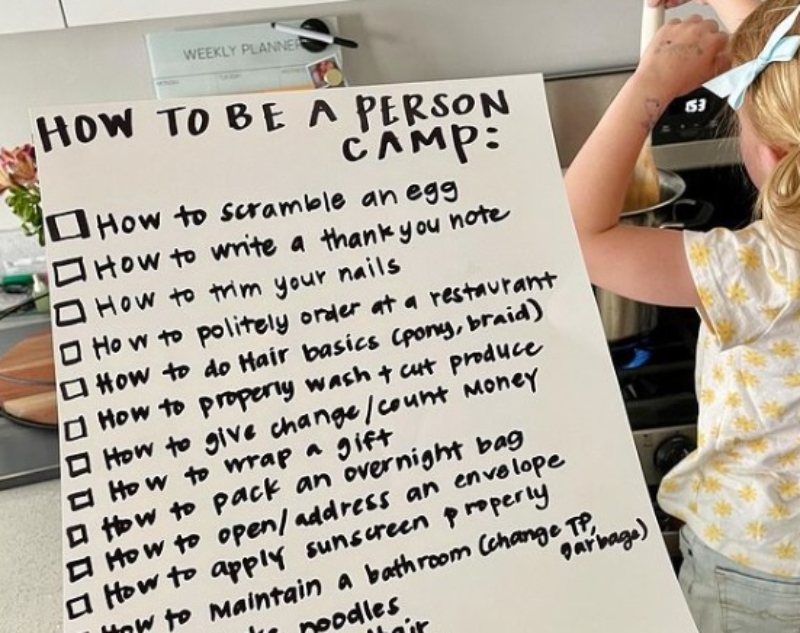 WEEKLY PLANNER
153
HOW TO BE A PERSON
CAMP:
How to scramble an egg
How to write a thank you note
How to trim your nails
How to politely order at a restaurant
How to do Hair basics (pony, braid)
How to properly wash + cut produce
How to give change/count money
How to wrap a gift
How to pack an overnight bag
How to open/address an envelope
How to apply sunscreen properly
How to Maintain a bathroom (change TP,
garbage)
noodles